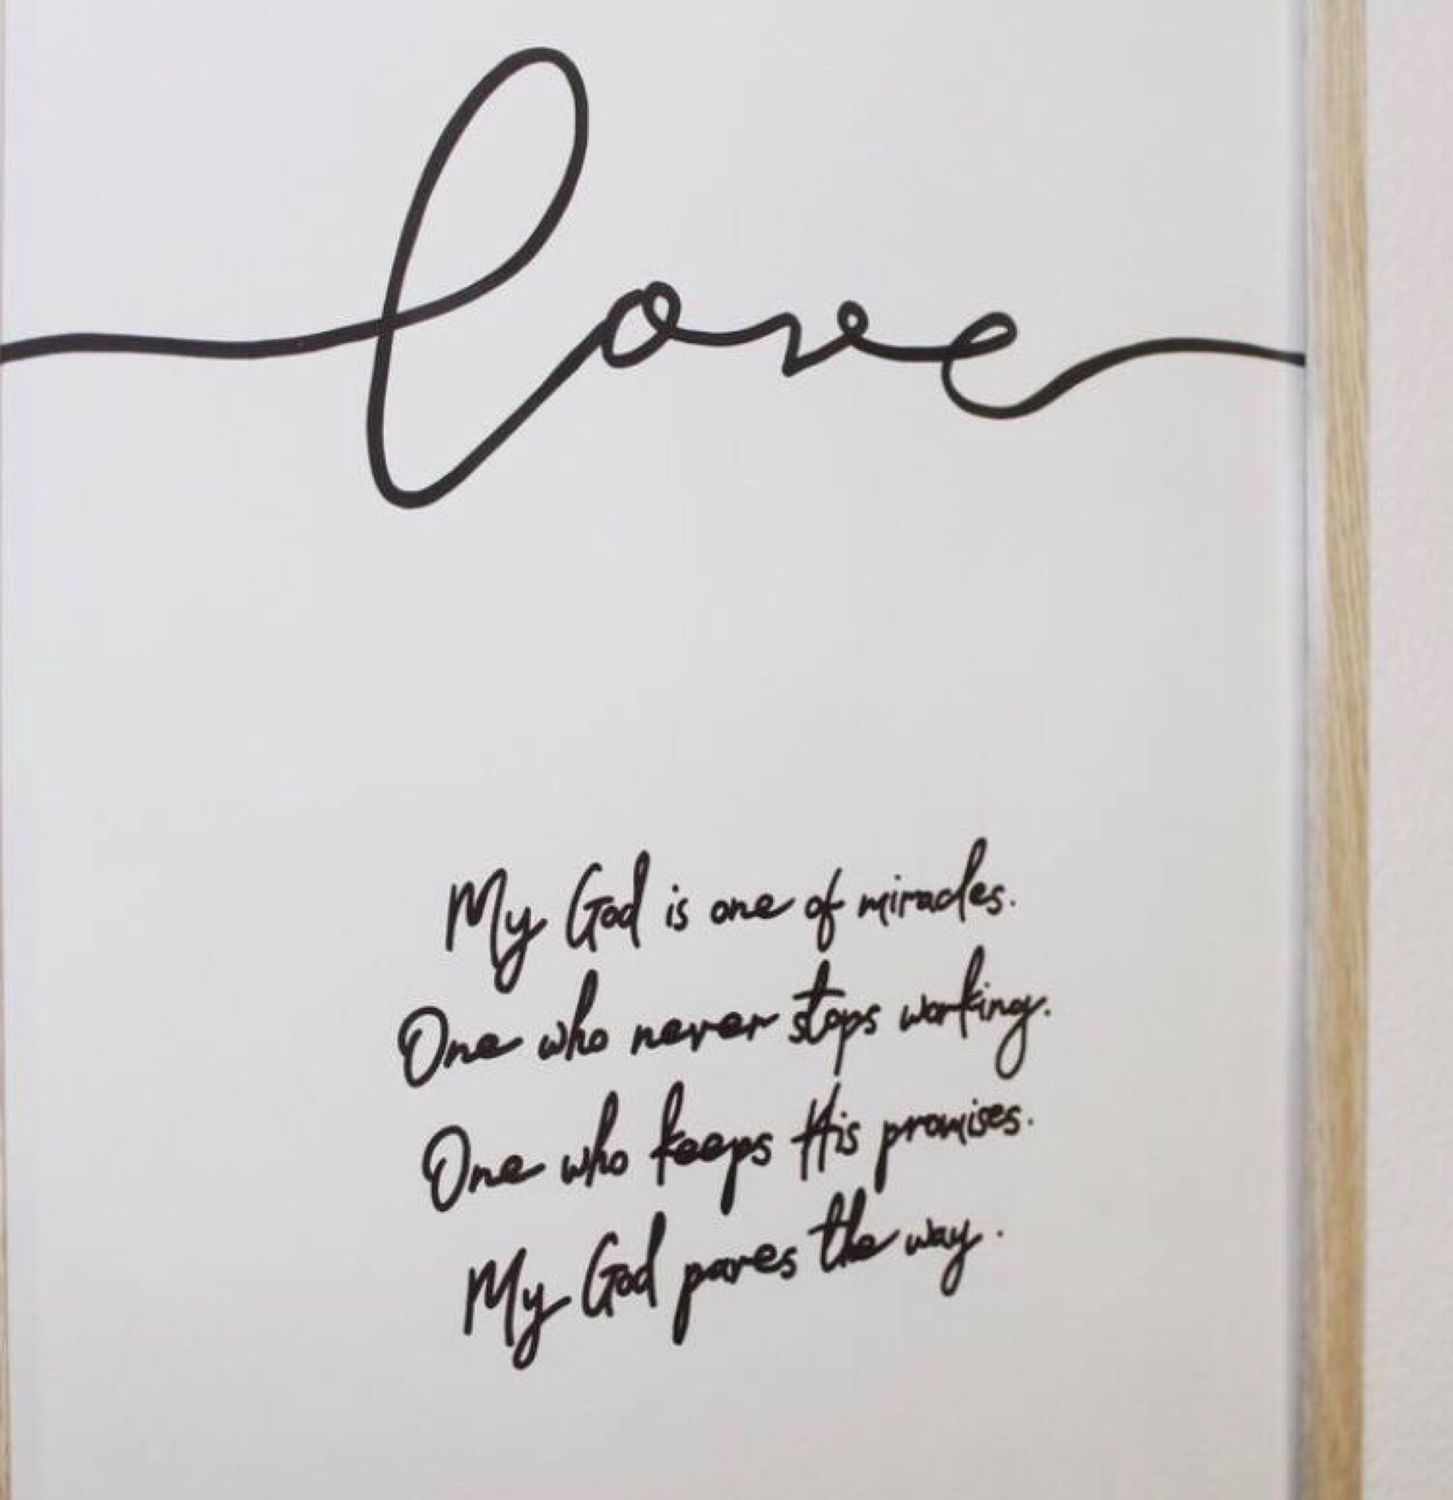 love
My God is one of miracles.
One who never stops working.
One who keeps His promises.
My God paves the way.